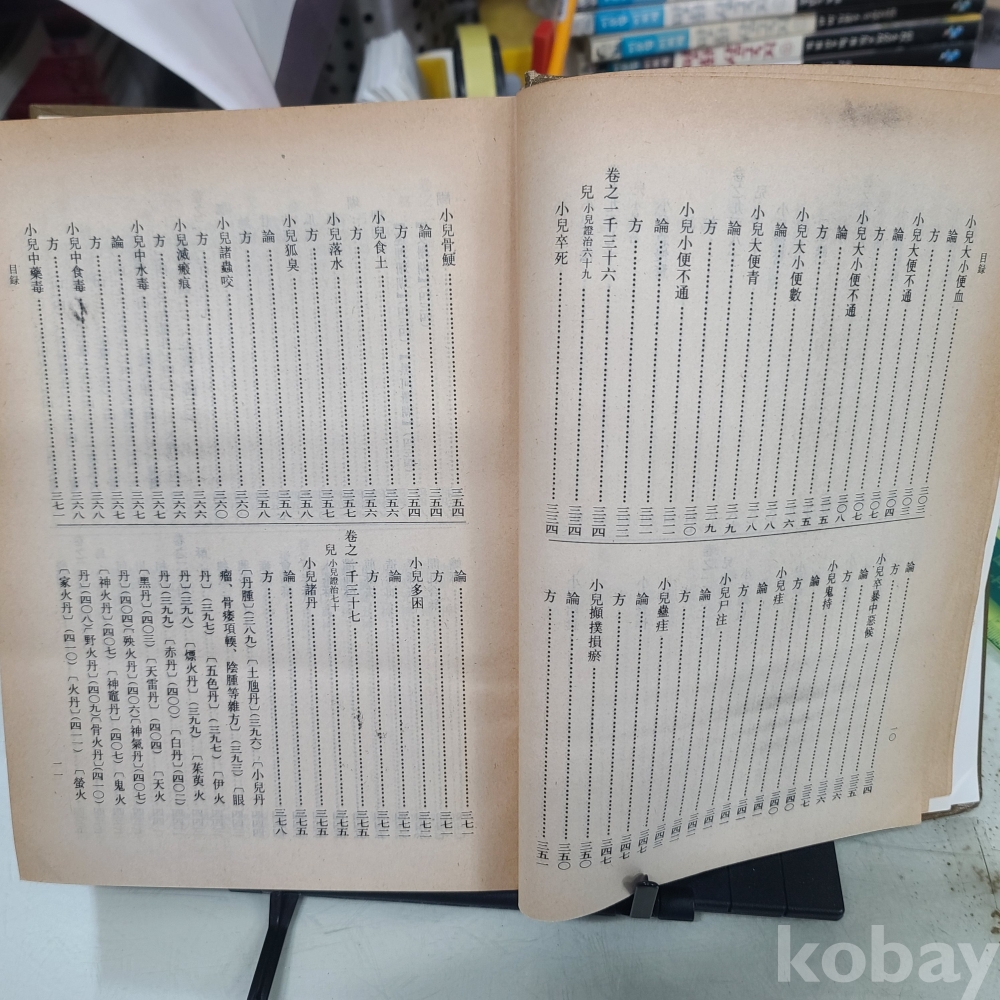 目錄
小兒大小便血……三〇三
論……三〇三
方……三〇四
小兒大便不通……三〇七
論……三〇七
方……三〇八
小兒大小便不通……三一五
論……三一五
方……三一六
小兒大小便數……三一八
論……三一八
小兒大便青……三一九
論……三一九
方……三二〇
小兒小便不通……三二一
論……三二一
方……三二二
卷之一千三十六……三三四
兒 小兒證治六十九……三三四
小兒卒死……三三四
論……三三四
方……三三五
小兒卒暴中惡候……三三六
論……三三六
方……三三七
小兒鬼持……三四〇
論……三四〇
方……三四一
小兒疰……三四一
論……三四一
方……三四二
小兒尸注……三四二
論……三四三
方……三四七
小兒蠱疰……三四七
論……三四七
方……三五〇
小兒攧撲損瘀……三五〇
論……三五〇
方……三五一
一〇
小兒骨鯁……三五四
論……三五四
方……三五四
小兒食土……三五六
方……三五六
小兒落水……三五七
方……三五七
小兒狐臭……三五八
論……三五八
方……三六〇
小兒諸蟲咬……三六〇
方……三六六
小兒滅瘢痕……三六六
方……三六七
小兒中水毒……三六七
論……三六七
方……三六八
小兒中食毒……三六八
方……三六八
小兒中藥毒……三七一
目錄
論……三七一
方……三七一
小兒多困……三七二
論……三七二
方……三七二
卷之一千三十七……三七五
兒 小兒證治七十……三七五
小兒諸丹……三七五
論……三七五
方……三七八
〔丹腫〕(三八九)〔土虺丹〕(三九六)〔小兒丹
瘤、骨痿項輭、陰腫等雜方〕(三九三)〔眼
丹〕(三九七)〔五色丹〕(三九七)〔伊火
丹〕(三九八)〔熛火丹〕(三九九)〔茱萸火
丹〕(三九九)〔赤丹〕(四〇〇)〔白丹〕(四〇二)
〔黑丹〕(四〇三)〔天雷丹〕(四〇四)〔天火
丹〕(四〇四)〔殃火丹〕(四〇六)〔神氣丹〕(四〇七)
〔神火丹〕(四〇七)〔神竈丹〕(四〇七)〔鬼火
丹〕(四〇八)〔野火丹〕(四〇九)〔骨火丹〕(四一〇)
〔家火丹〕(四一〇)〔火丹〕(四一一)〔螢火
一一
kobay